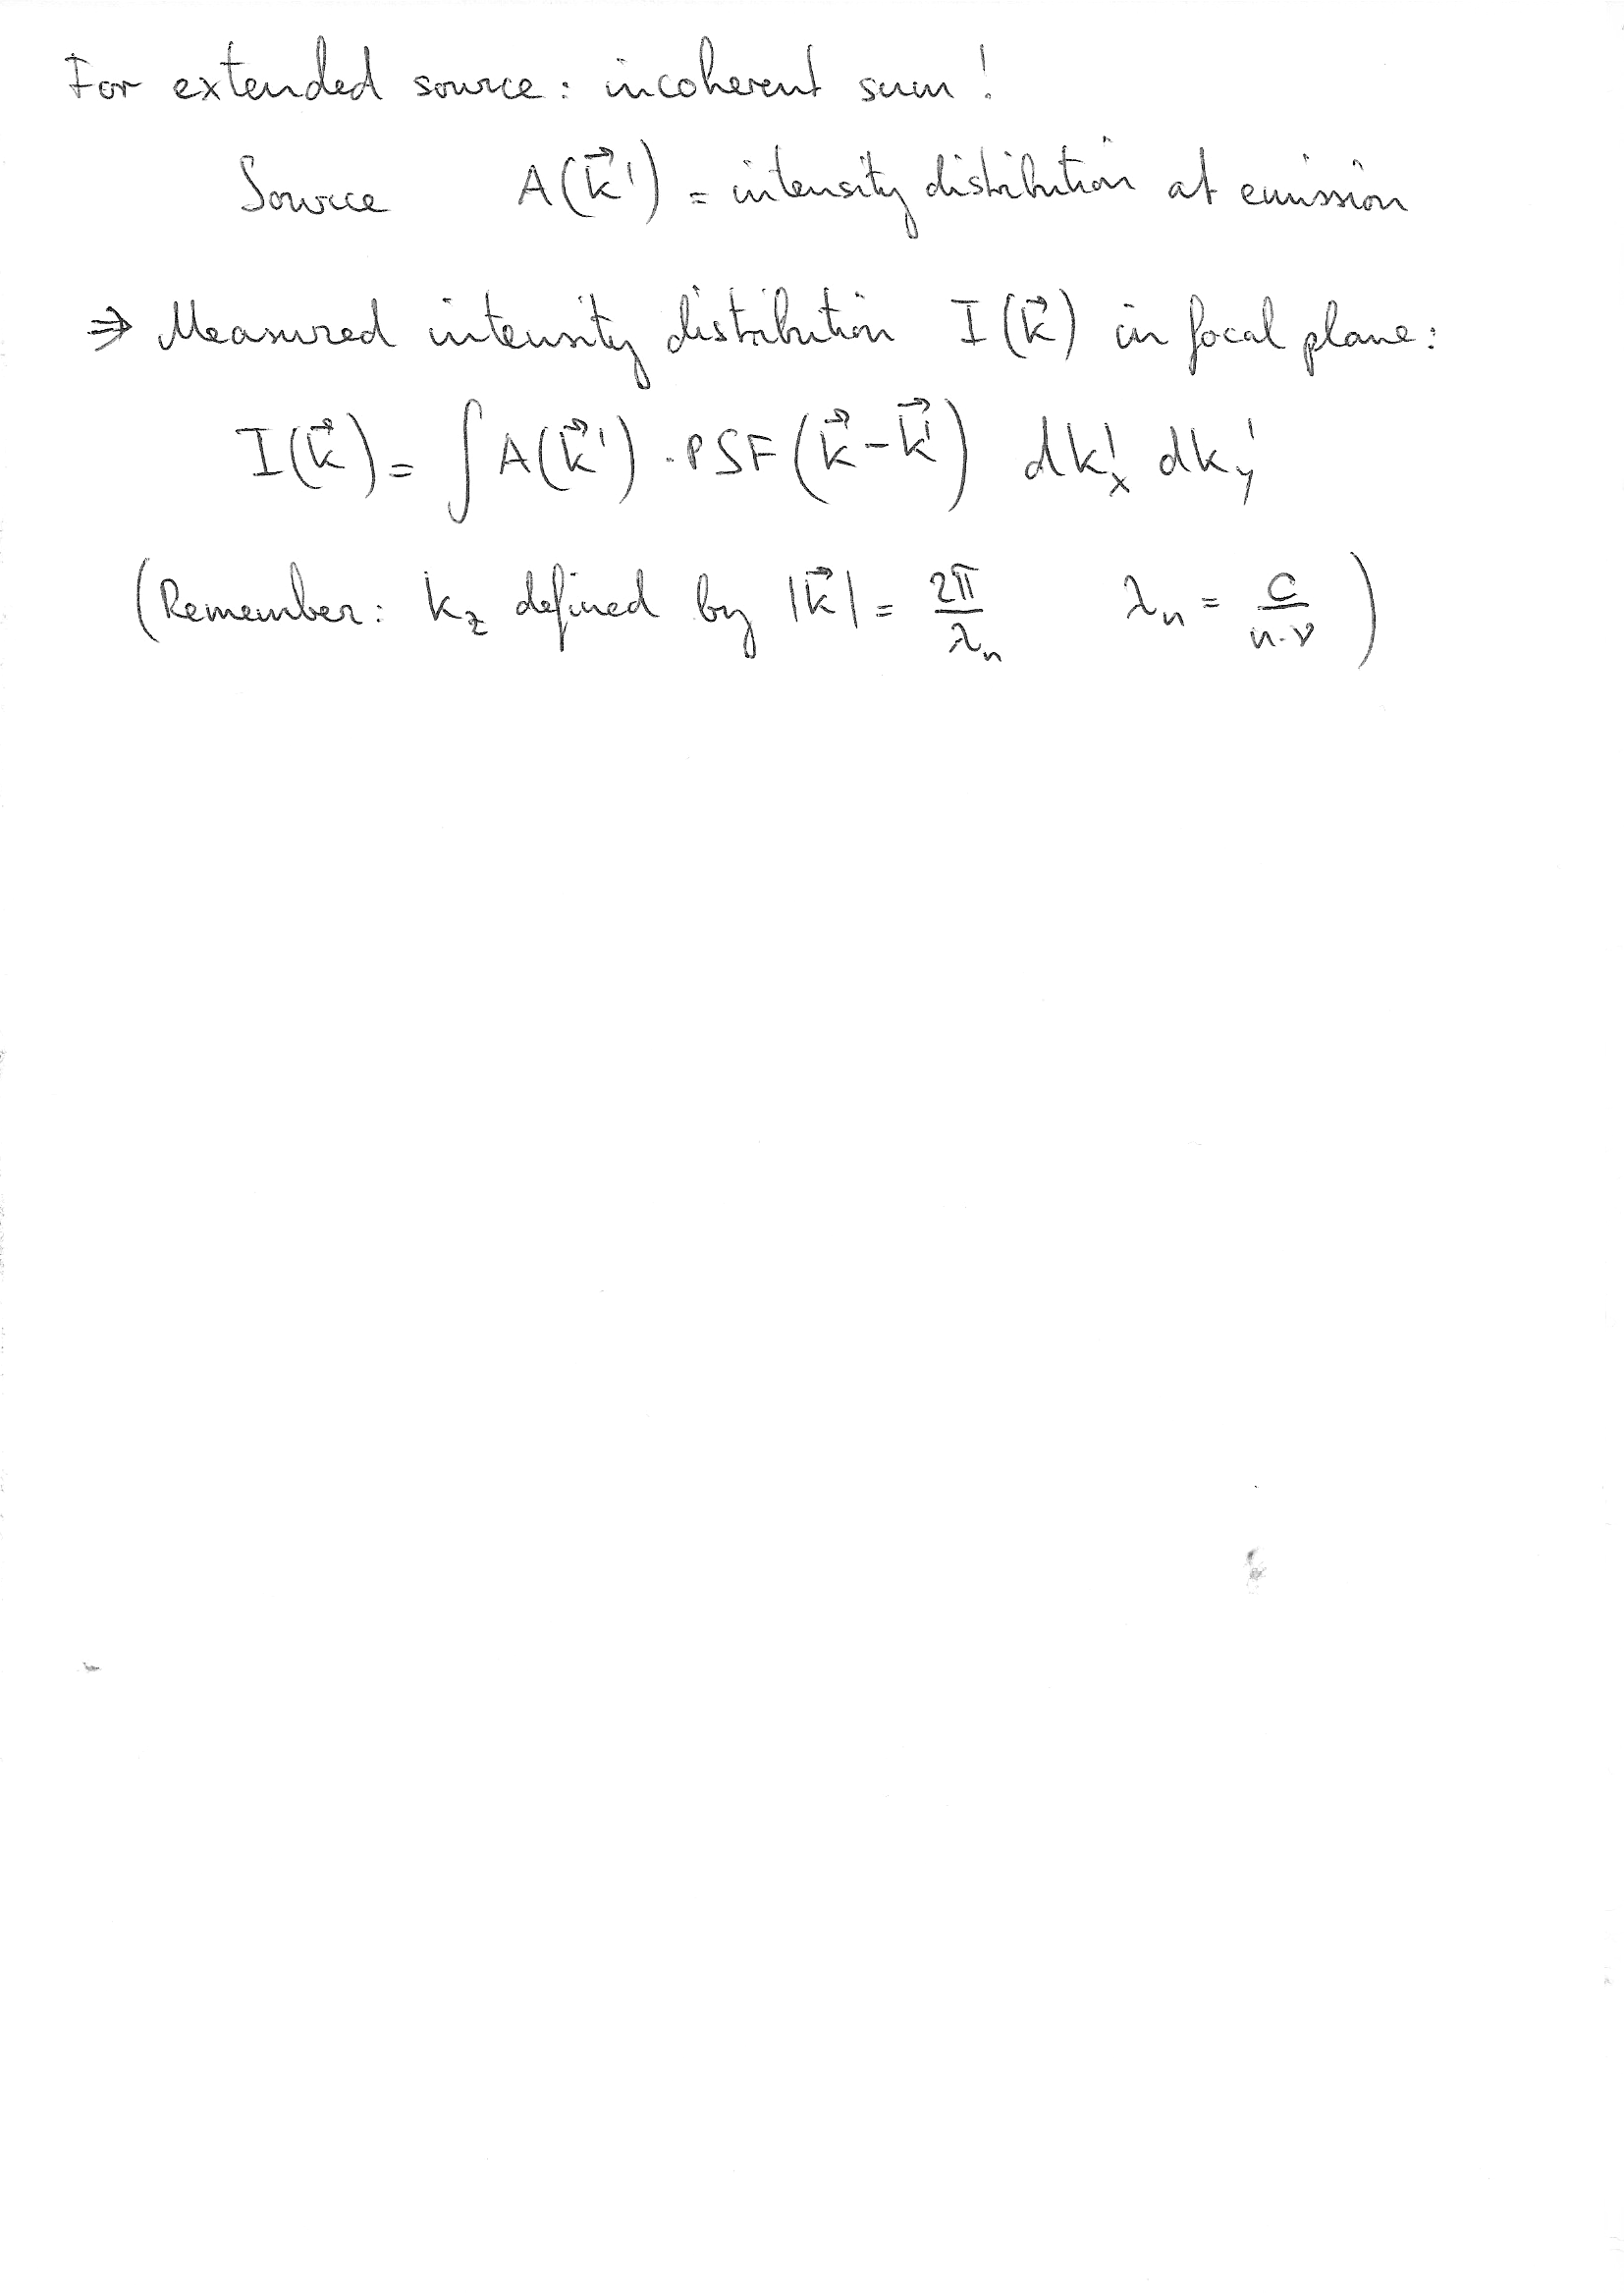 For extended source: incoherent sum!
Source A(k⃗') = intensity distribution at emission
⇒ Measured intensity distribution I(k⃗) in focal plane:
I(k⃗) = ∫ A(k⃗') · PSF(k⃗ - k⃗') dk'ₓ dk_y'
(Remember: k_z defined by |k⃗| = 2π/λₙ λₙ = c/(n·ν))